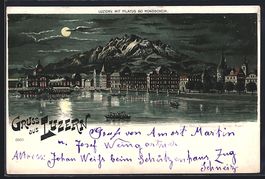 LUZERN MIT PILATUS BEI MONDSCHEIN.
Gruss
aus
LUZERN
Gruß von Amort Martin
u. Josef
Adresse: Johan Weiß beim Schützenhaus Zug
Schweiz